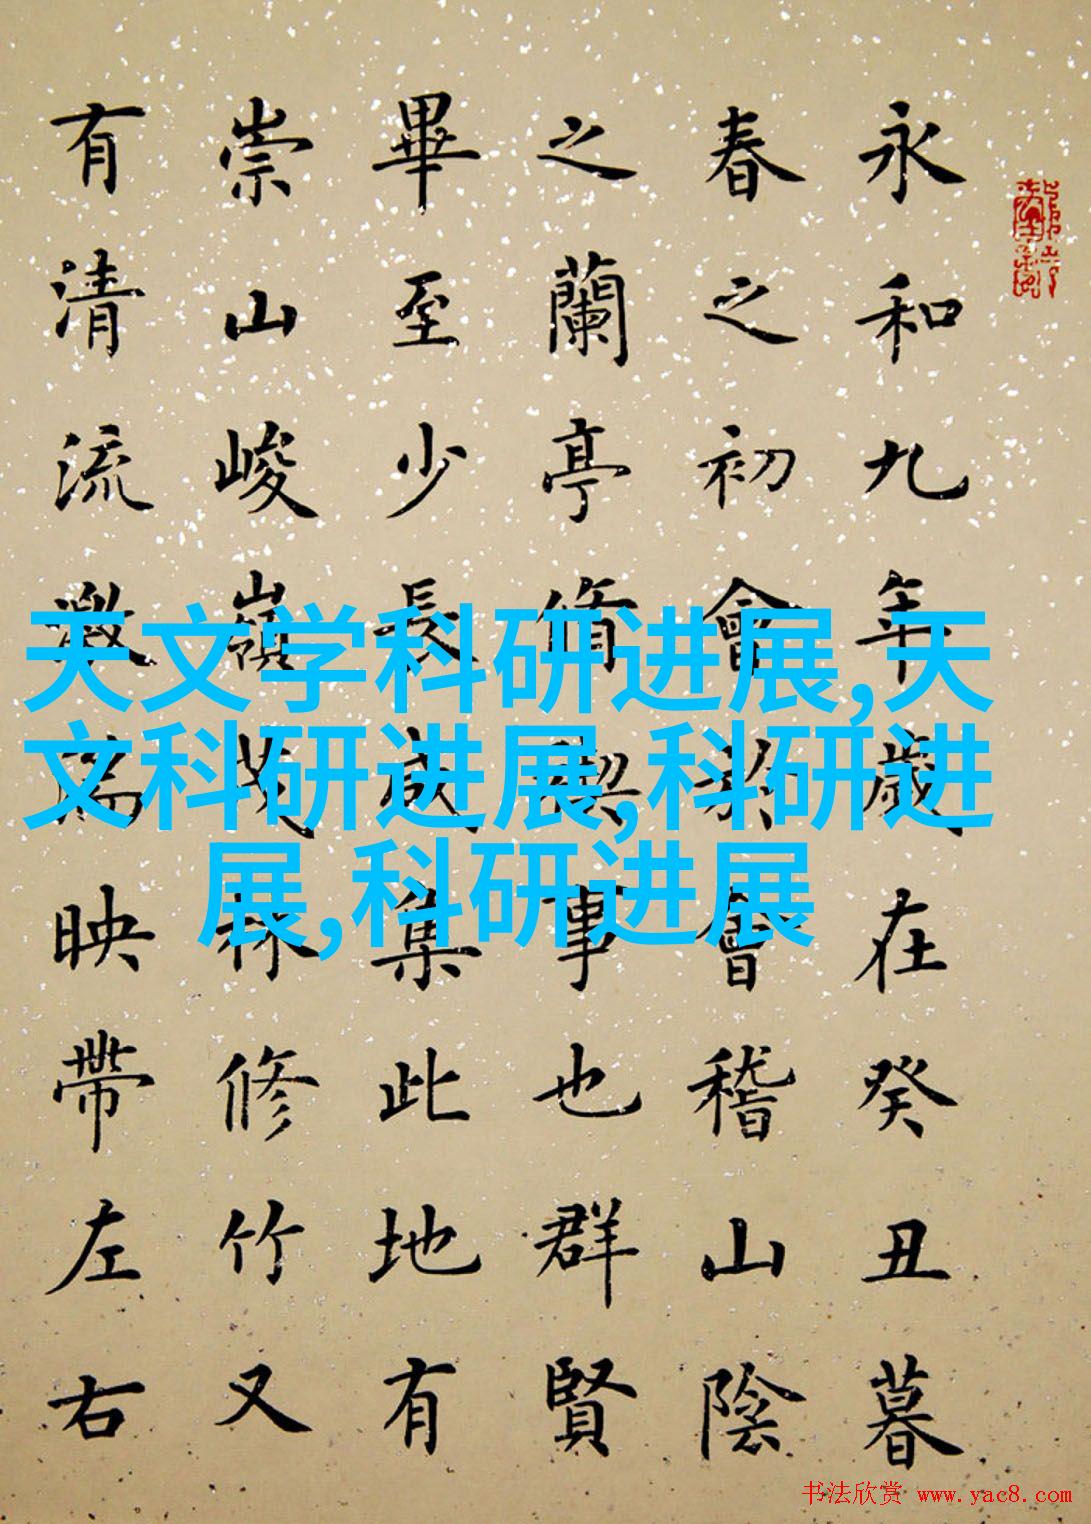 永和九年歲在癸丑暮
春之初會於會稽山陰
之蘭亭脩禊事也群賢
畢至少長咸集此地有
崇山峻嶺茂林修竹又
有清流激湍映帶左右
天文学科研进展,天
文科研进展,科研进
展,科研进展
书法欣赏 www.yac8.com